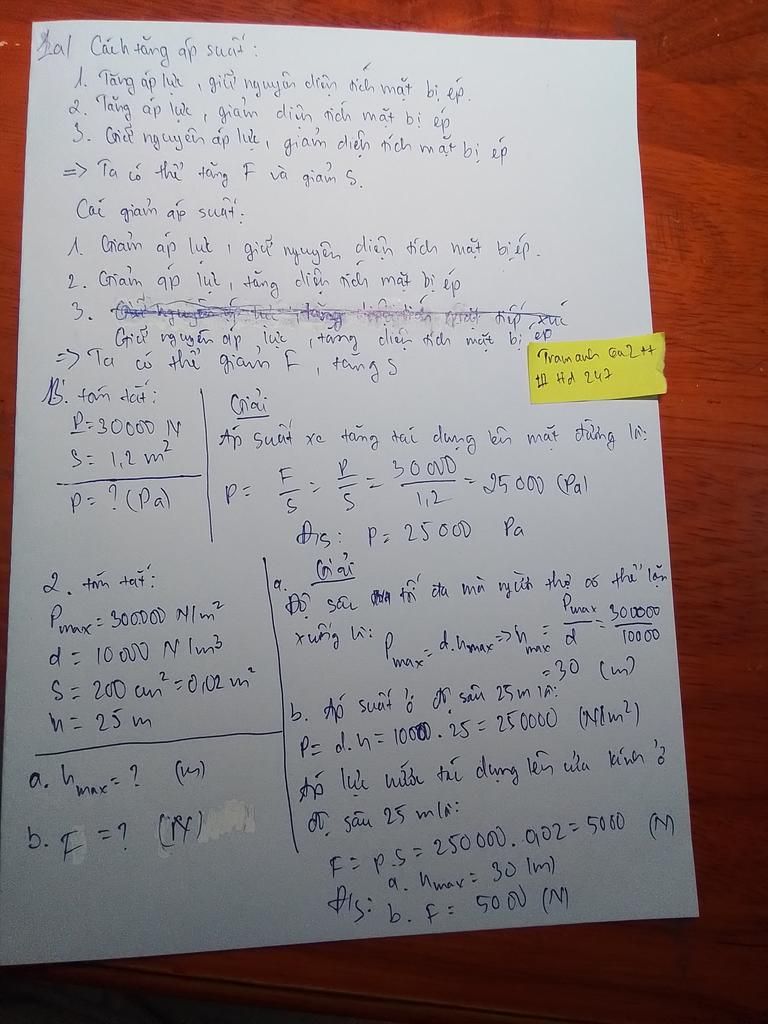 1a/ Cách tăng áp suất:
1. Tăng áp lực, giữ nguyên diện tích mặt bị ép.
2. Tăng áp lực, giảm diện tích mặt bị ép
3. Giữ nguyên áp lực, giảm diện tích mặt bị ép
=> Ta có thể tăng F và giảm S.
Các giảm áp suất:
1. Giảm áp lực, giữ nguyên diện tích mặt bị ép.
2. Giảm áp lực, tăng diện tích mặt bị ép
3. Giữ nguyên áp lực, tăng diện tích mặt tiếp xúc
Giữ nguyên áp lực, tăng diện tích mặt bị ép
=> Ta có thể giảm F, tăng S
Tramanh
Hd 247
B. tóm tắt:
P = 30000 N
S = 1,2 m²
P = ? (Pa)
Giải
Áp suất xe tăng tác dụng lên mặt đường là:
P = F/S = P/S = 30000/1,2 = 25000 (Pa)
Đ/s: P = 25000 Pa
2. tóm tắt:
Pmax = 300000 N/m²
d = 10000 N/m³
S = 200 cm² = 0,02 m²
h = 25 m
a. hmax = ? (m)
b. F = ? (N)
a. Giải
Độ sâu tối đa mà người thợ có thể lặn
xuống là: Pmax = d.hmax => hmax = Pmax/d = 300000/10000
= 30 (m)
b. Áp suất ở độ sâu 25m là:
P = d.h = 10000.25 = 250000 (N/m²)
Áp lực nước tác dụng lên cửa kính ở
độ sâu 25 m là:
F = p.S = 250000.0,02 = 5000 (N)
Đ/s: a. hmax = 30 (m)
b. F = 5000 (N)